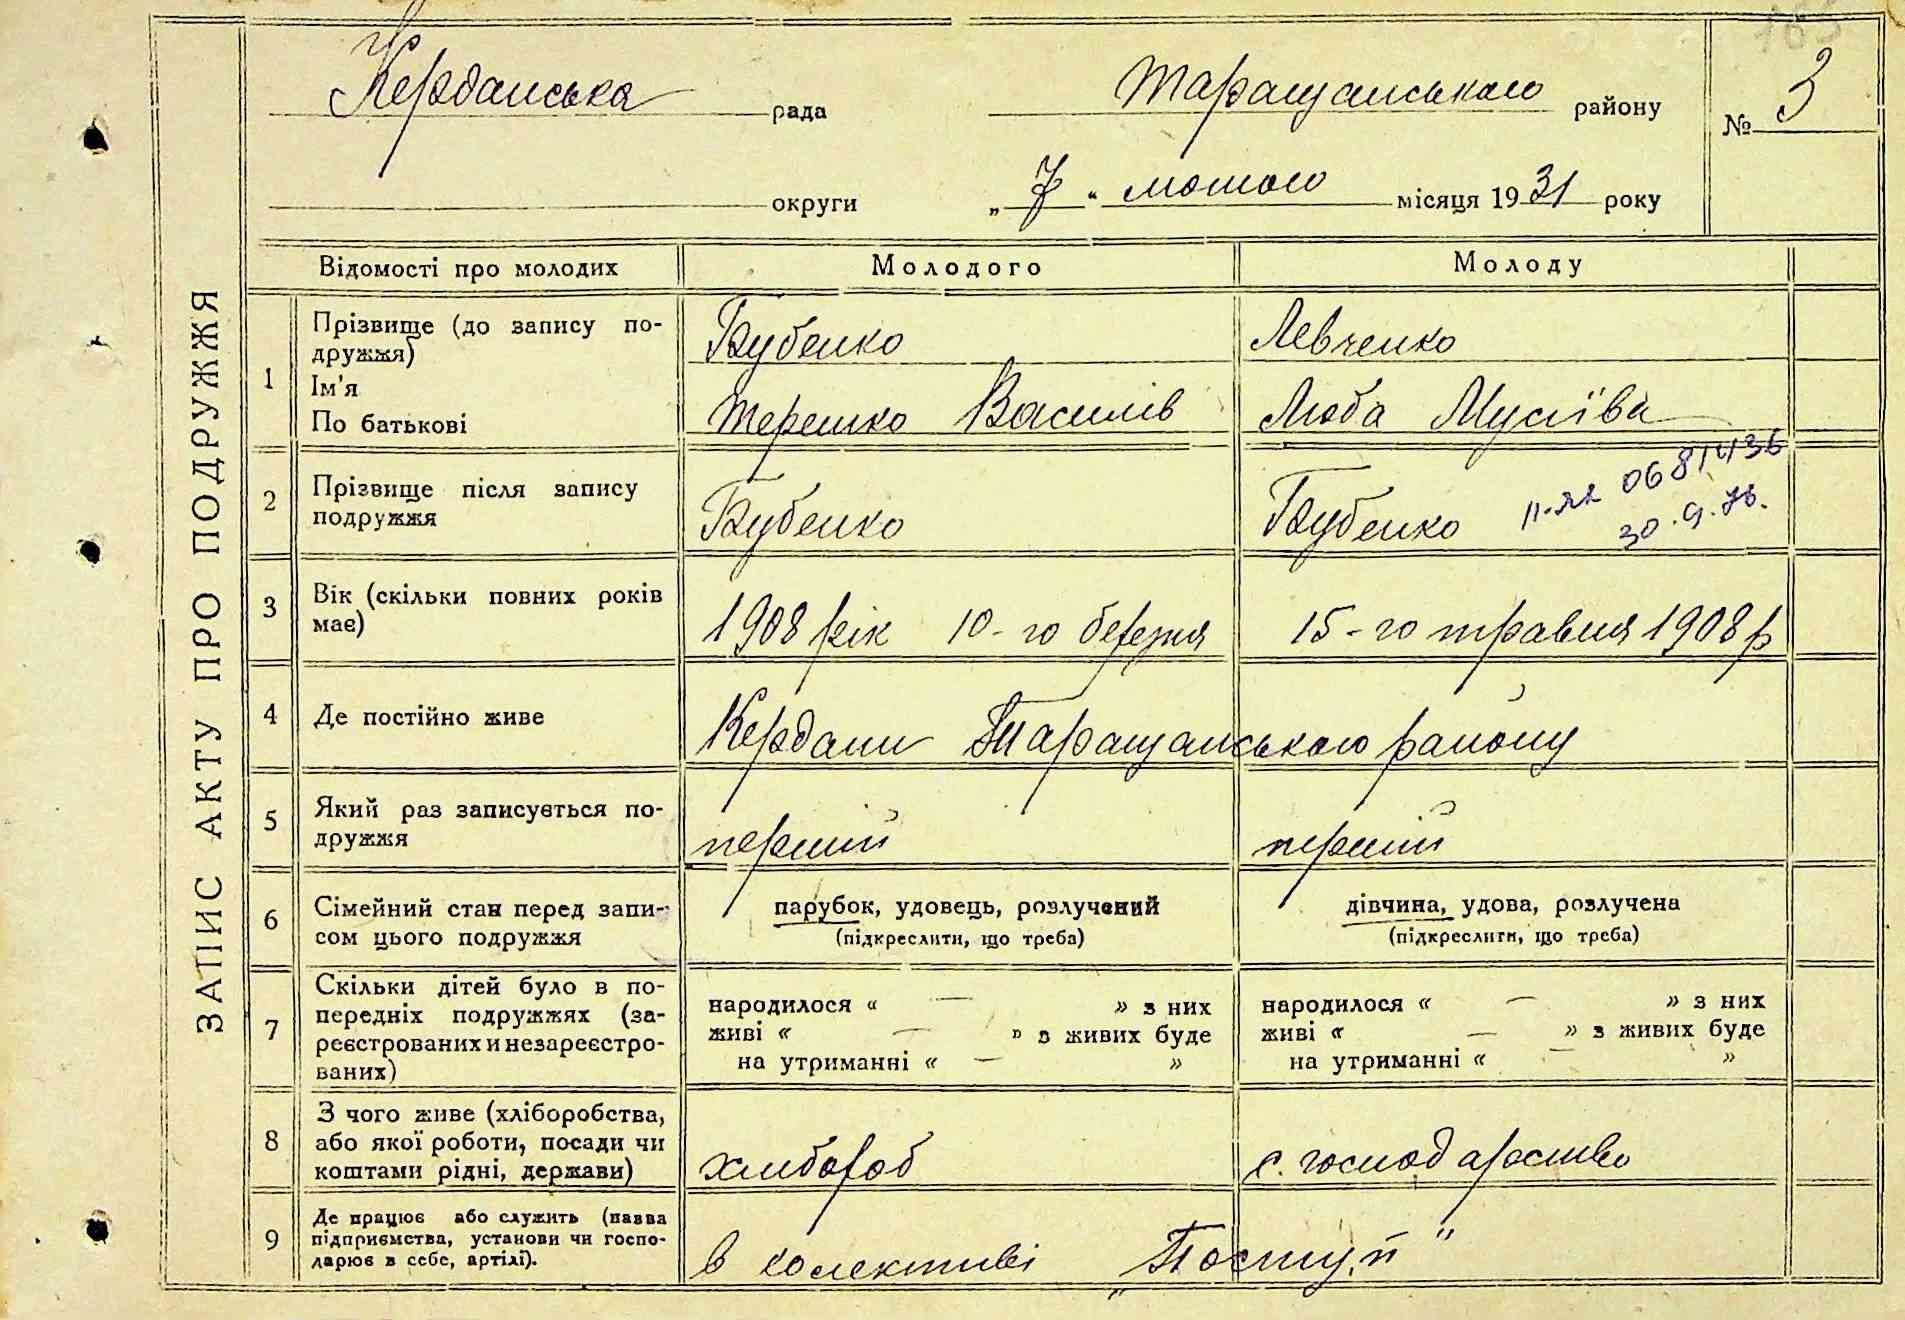 183
Кердансъка рада Таращанського району № 3
округи „7“ лютого місяця 1931 року
ЗАПИС АКТУ ПРО ПОДРУЖЖЯ
Відомості про молодих Молодого Молоду
1 Прізвище (до запису по-
дружжя)
Ім'я
По батькові
Бубенко Левченко
Терешко Василів Люба Мусіїва
2 Прізвище після запису
подружжя
Бубенко Бубенко
0681436
30.9.76.
3 Вік (скільки повних років
має)
1908 рік 10-го березня 15-го травня 1908 р
4 Де постійно живе
Кердани Таращанського району
5 Який раз записується по-
дружжя
перший перший
6 Сімейний стан перед запи-
сом цього подружжя
парубок, удовець, розлучений дівчина, удова, розлучена
(підкреслити, що треба) (підкреслити, що треба)
7 Скільки дітей було в по-
передніх подружжях (за-
реєстрованих и незареєстро-
ваних)
народилося « — » з них народилося « — » з них
живі « — » з живих буде живі « — » з живих буде
на утриманні « — » на утриманні « — »
8 З чого живе (хліборобства,
або якої роботи, посади чи
коштами рідні, держави)
хлібороб с. господарство
9 Де працює або служить (назва
підприємства, установи чи госпо-
дарює в себе, артілі).
в колективі „Поступ"